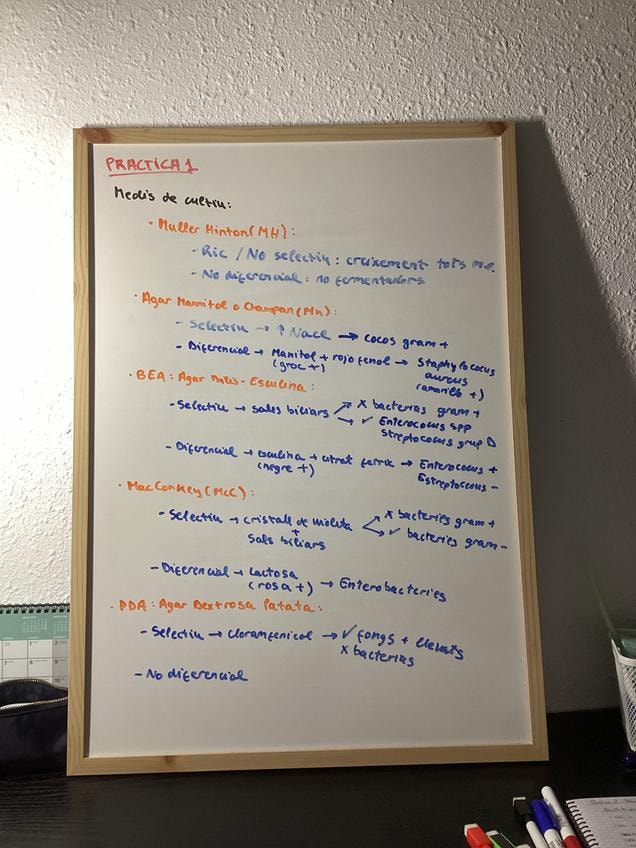 PRACTICA 1
Medis de cultiu:
· Muller Hinton (MH):
- Ric / No selectiu: creixement tots m.o.
- No diferencial: no fermentadors
· Agar Mannitol o Chapman (Mn):
- Selectiu → ↑ NaCl → cocos gram +
- Diferencial → Manitol + rojo fenol → Staphylococus
(groc +)
aureus
(amarillo +)
· BEA: Agar Bilis - Esculina:
- Selectiu → sals biliars
x bacterias gram +
✓ Enterococus spp
Streptococus grup D
- Diferencial → esculina + citrat ferric → Enterococus +
(negre +)
Estreptococcus -
· MacConkey (McC):
- Selectiu → cristall de violeta
+
sals biliars
x bacteries gram +
✓ bacteries gram -
- Diferencial → Lactosa
(rosa +)
→ Enterobacteries
· PDA: Agar Dextrosa Patata:
- Selectiu → cloramfenicol → ✓ fongs + llevats
x bacterias
- No diferencial